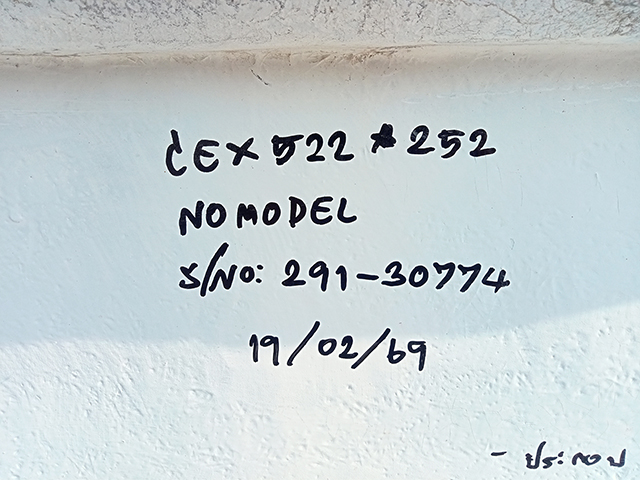 CEX 522 * 252
NO MODEL
S/NO: 291-30774
19/02/69
- ประกอบ